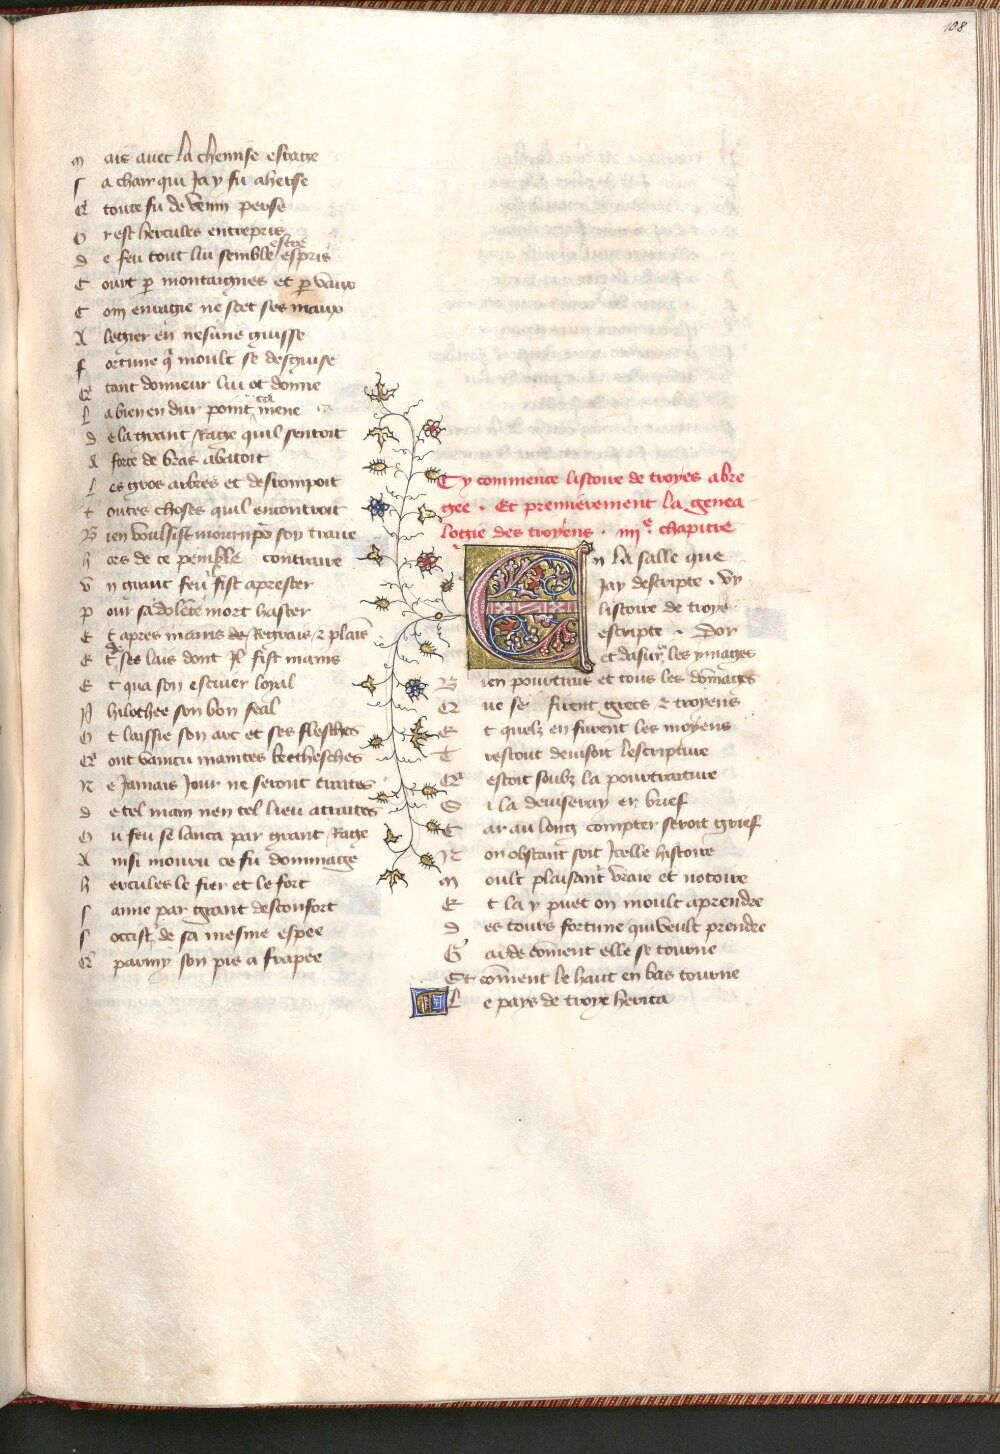 108
Mais avec la chemise estace
Sa char qui Jay fu aherse
Et toute fu de venin perse
Or est hercules entrepris
De feu tout lui semble estre espris
Court p montaignes et p vaux
Com enragie ne scet ses maux
Alegier en nesune guisse
Fortune q moult se desguise
Et tant donneur lui ot donne
La bien en dur point mene
De la grant Rage quil sentoit
A force de bras abatoit
Les gros arbres et desrompoit
Toutes choses quil encontroit
Bien voulsist mourir po son traire
hors de ce penible contraire
Vn grant feu fist aprester
Pour sa dolete mort haster
Et apres mains Regrais z plais
Et de ses lais dont Il fist mains
Et qua son escuier loyal
Philothee son bon feal
Ot laissie son arc et ses flesches
Qui ont vaincu maintes bretesches
Ne Jamais Jour ne seront traites
De tel main nen tel lieu attraites
Ou feu se lanca par grant Rage
Ainsi mouru ce fu dommage
hercules le fier et le fort
Sanie par grant desconfort
Soccist de sa mesme espee
Quparmy son pis a frapee
Cy commence listoire de troyes abre
gee . Et premierement la genea
logie des troyens . iiii e chapitre
En la salle que
Jay descripte . vy
listoire de troye
escripte . Dor
et dasur les ymages
Bien pourtrais et tous les domages
Que se firent grecs z troyens
Et quelz en furent les moyens
Trestout devisoit lescripture
Questoit soubz la pourtraiture
Si la deviseray en brief
Car au long compter seroit grief
Non obstant soit Jcelle histoire
Moult plaisant vraie et notoire
Et la y puet on moult aprendre
Des tours fortune qui veult prendre
Garde coment elle se tourne
Et coment le haut en bas tourne
Le pays de troye herita